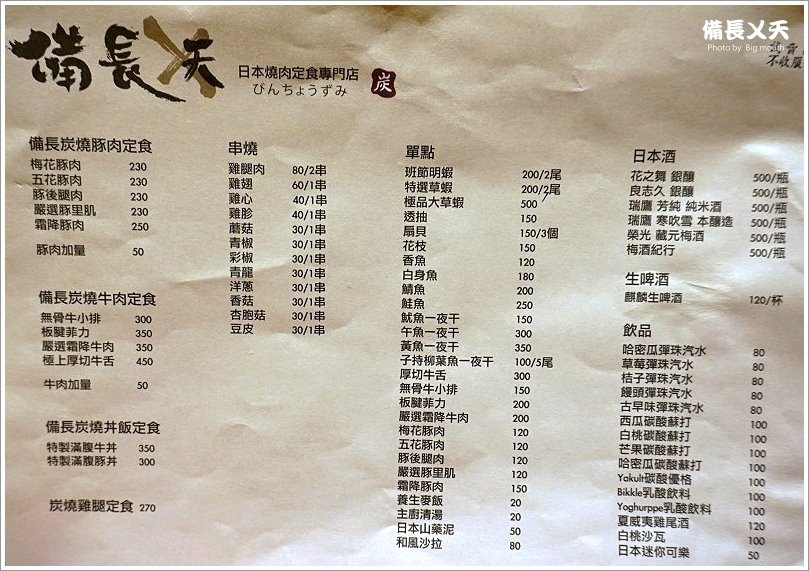 備長乂天
日本燒肉定食專門店
びんちょうずみ
炭
備長乂天
Photo by Big mouth
不收服
備長炭燒豚肉定食
梅花豚肉 230
五花豚肉 230
豚後腿肉 230
嚴選豚里肌 230
霜降豚肉 250
豚肉加量 50
備長炭燒牛肉定食
無骨牛小排 300
板腱菲力 350
嚴選霜降牛肉 350
極上厚切牛舌 450
牛肉加量 50
備長炭燒丼飯定食
特製滿腹牛丼 350
特製滿腹豚丼 300
炭燒雞腿定食 270
串燒
雞腿肉 80/2串
雞翅 60/1串
雞心 40/1串
雞胗 40/1串
蘑菇 30/1串
青椒 30/1串
彩椒 30/1串
青龍 30/1串
洋蔥 30/1串
香菇 30/1串
杏胞菇 30/1串
豆皮 30/1串
單點
班節明蝦 200/2尾
特選草蝦 200/2尾
極品大草蝦 500
透抽 150
扇貝 150/3個
花枝 150
香魚 120
白身魚 180
鯖魚 200
鮭魚 250
魷魚一夜干 150
午魚一夜干 300
黃魚一夜干 350
子持柳葉魚一夜干 100/5尾
厚切牛舌 300
無骨牛小排 150
板腱菲力 200
嚴選霜降牛肉 200
梅花豚肉 120
五花豚肉 120
豚後腿肉 120
嚴選豚里肌 120
霜降豚肉 150
養生麥飯 20
主廚清湯 20
日本山藥泥 50
和風沙拉 80
日本酒
花之舞 銀釀 500/瓶
良志久 銀釀 500/瓶
瑞鷹 芳純 純米酒 500/瓶
瑞鷹 寒吹雪 本釀造 500/瓶
榮光 藏元梅酒 500/瓶
梅酒紀行 500/瓶
生啤酒
麒麟生啤酒 120/杯
飲品
哈密瓜彈珠汽水 80
草莓彈珠汽水 80
桔子彈珠汽水 80
饅頭彈珠汽水 80
古早味彈珠汽水 80
西瓜碳酸蘇打 100
白桃碳酸蘇打 100
芒果碳酸蘇打 100
哈密瓜碳酸蘇打 100
Yakult碳酸優格 100
Bikkle乳酸飲料 100
Yoghurppe乳酸飲料 100
夏威夷雞尾酒 120
白桃沙瓦 100
日本迷你可樂 50